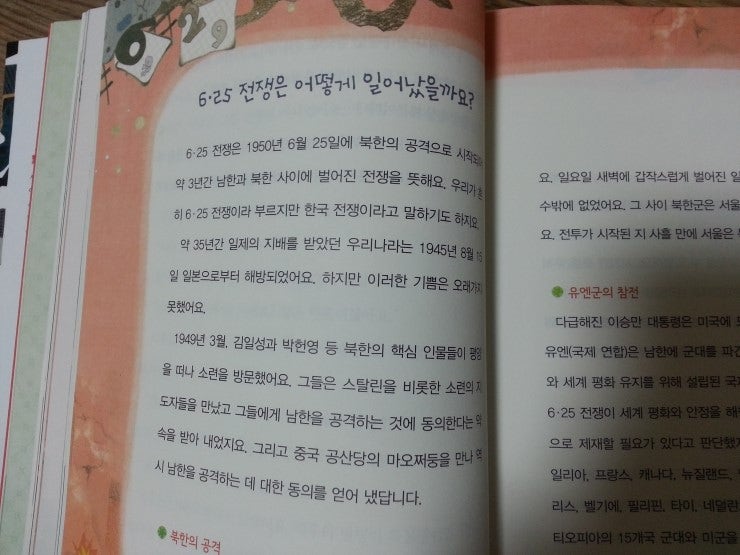 6 29
6·25 전쟁은 어떻게 일어났을까요?
6·25 전쟁은 1950년 6월 25일에 북한의 공격으로
약 3년간 남한과 북한 사이에 벌어진 전쟁을 뜻해요. 우리가
히 6·25 전쟁이라 부르지만 한국 전쟁이라고 말하기도 하지요.
약 35년간 일제의 지배를 받았던 우리나라는 1945년 8월 15
일 일본으로부터 해방되었어요. 하지만 이러한 기쁨은
못했어요.
1949년 3월, 김일성과 박헌영 등 북한의 핵심 인물들이
을 떠나 소련을 방문했어요. 그들은 스탈린을 비롯한 소련의 지
도자들을 만났고 그들에게 남한을 공격하는 것에 동의한다는 약
속을 받아 내었지요. 그리고 중국 공산당의 마오쩌둥을 만나 역
시 남한을 공격하는 데 대한 동의를 얻어 냈답니다.
북한의 공격
요. 일요일 새벽에 갑작스럽게 벌어진
수밖에 없었어요. 그 사이 북한군은
요. 전투가 시작된 지 사흘 만에 서울은
유엔군의 참전
다급해진 이승만 대통령은 미국에
유엔(국제 연합)은 남한에 군대를
와 세계 평화 유지를 위해 설립된
6·25 전쟁이 세계 평화와 안정을
으로 제재할 필요가 있다고 판단했
일리아, 프랑스, 캐나다, 뉴질랜드,
리스, 벨기에, 필리핀, 타이, 네덜란
티오피아의 15개국 군대와 미군을